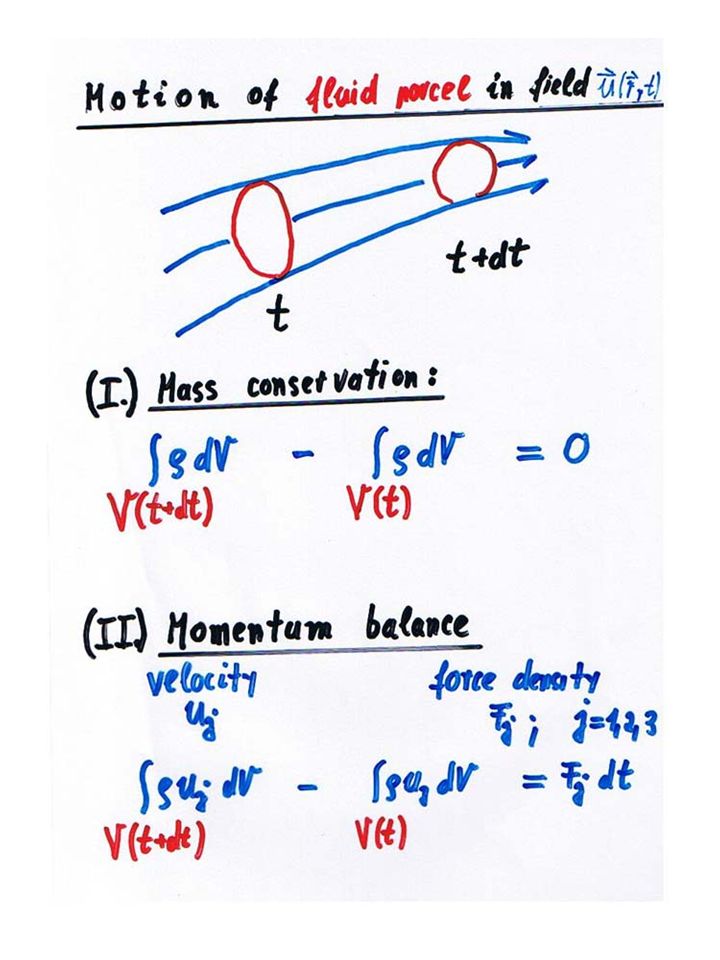 Motion of fluid parcel in field u⃗(r⃗,t)
t+dt
t
(I.) Mass conservation:
∫ρdV - ∫ρdV = 0
V(t+dt) V(t)
(II.) Momentum balance
velocity force density
u_j F_j ; j=1,2,3
∫ρu_j dV - ∫ρu_j dV = F_j dt
V(t+dt) V(t)